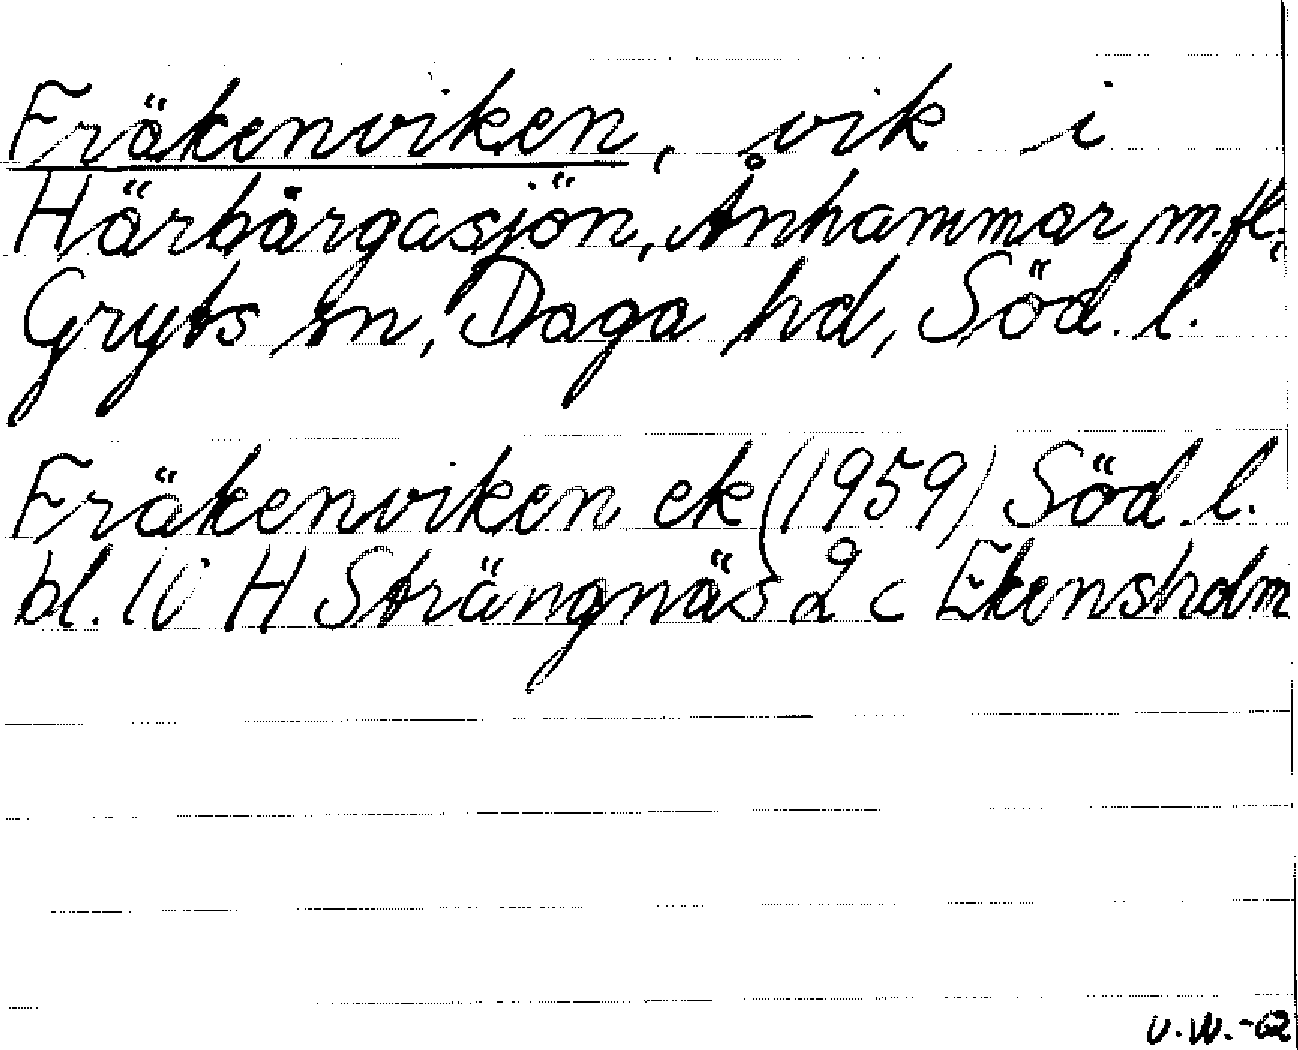 Fräkenviken, vik i
Härbärgasjön, Ånhammar m.fl.,
Gryts sn, Daga hd, Söd. l.
Fräkenviken ek (1959) Söd. l.
bl. 10 H Strängnäs 2 c Ekensholm
U.W.-Q